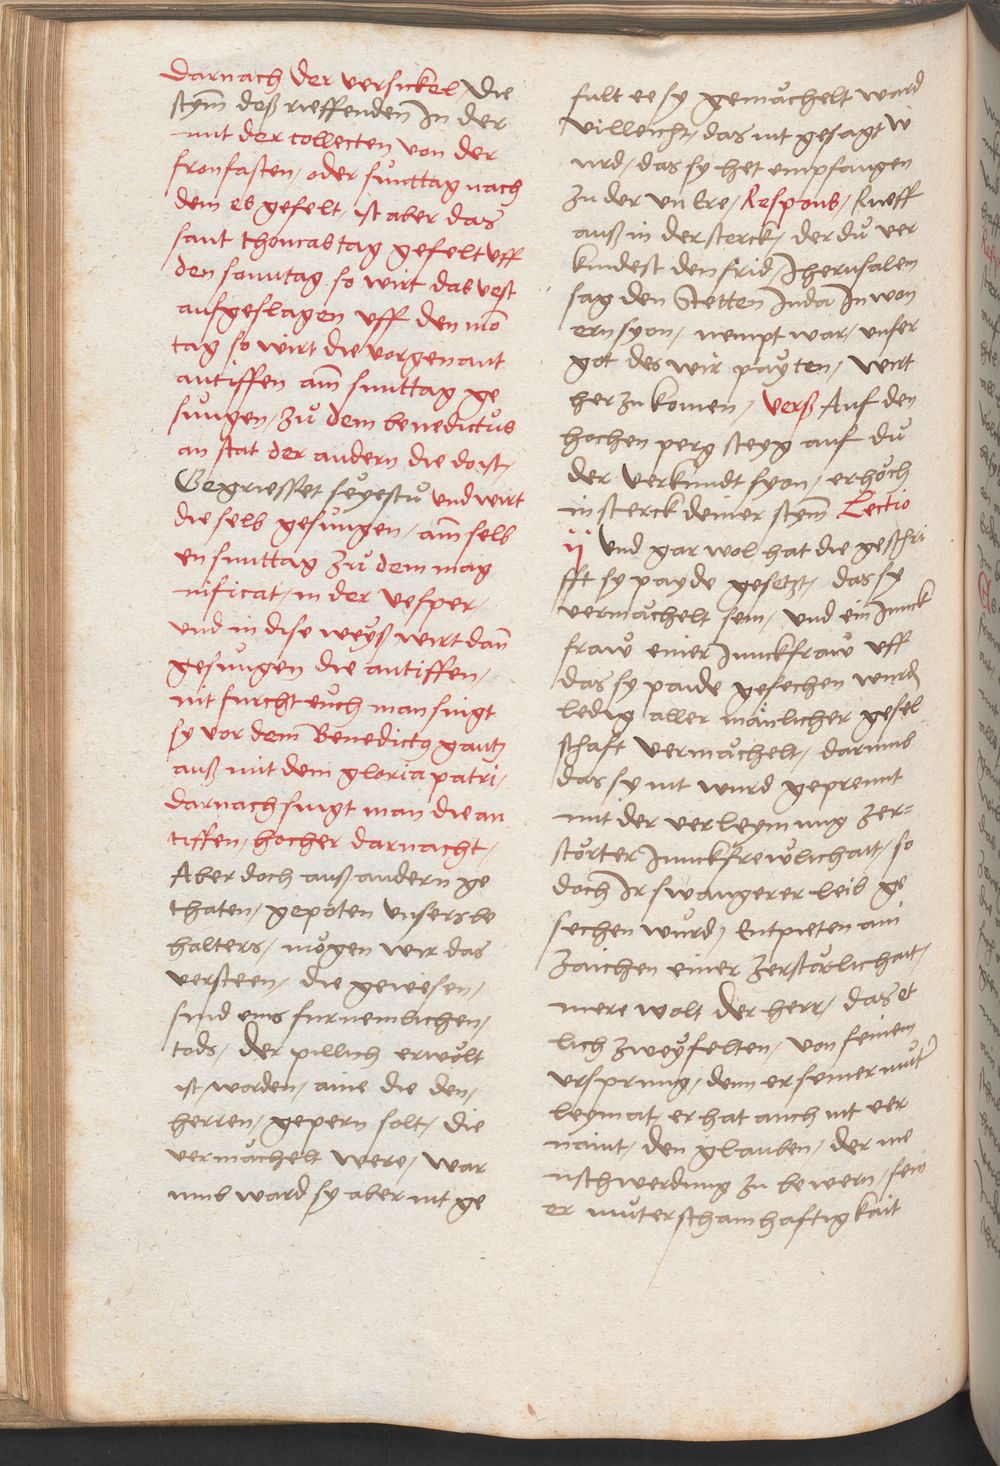 darnach der versickel, die
stym̄ deß rieffenden In der
mit der collecten von der
fronfasten, oder suͦnttag nach
dem es gefelt, ist aber das
sant thomastag gefelt vff
den sonntag so wirt das vest
aufgeslagen vff den mō
tag so wirt die vorgenant
antiffen am̄ sunttag ge
suͦngen, zuͦ dem benedictuͦs
an stat der andern die do ist,
Gegriesset seÿestuͦ vnd wirt
die selb gesuͦngen, am̄ selb
en sunttag zuͦ dem mag
nificat, in der vesper,
vnd in dise weÿß wirt dan̄
gesuͦngen die antiffen,
nit furcht euͦch man singt
sy vor dem Benedictꝯ gantz
auß mit dem gloria patri,
darnach singt man die an
tiffen, hocher darnacht,
Aber doch auß andern ge
thaten, gepoten vnsers be
halters, moͤgen wir das
versteen, die gewesen,
sind eins furnemlichen,
tods, der pillich erwoͤlt
ist worden, aine die den,
herren, gepern solt, die
vermaͤchelt were, war
umb ward sy aber nit ge
fult ee sy gemaͤchelt ward
villeicht, das nit gesagt w
urd, das sy het empfangen
zu der vn Ere, Respons, Rueff
auß in der sterck, der duͦ ver
kundest den frid, Jherusalen
sag den Stetten Juda In won
ern syon, nempt war, vnser
got des wir paÿten, wirt
her zu komen, verß Auf den
hochen perg steyg auf duͦ
der verkundt syon, erhoͤch
in sterck deiner stym̄ Lectio
ij vnd gar wol hat die geschri
fft sy payde gesetzt, das sy
vermaͤchelt sein, vnd ein Junck
fraw einer Junckfraw vff
das sy paide gesechen wurd
ledig aller mänlicher gesel
schaft vermaͤchelt, darumb
das sy nit wurd geprennt
mit der verleymung zer=
stoͤrter Junckfrewlichait, so
doch Ir swangerer leib ge
sechen wuͤrd, Entpieten ain
zaichen einer zerstoͤrlichait,
mere wolt der herr, das et
lich zweÿfelten, von seinem
vrsprung, denn er seiner muͦtˀ
leymat, er hat auch nit ver
naint, den glauben, der me
nschwerdung zu bewern, sein
er muͦter schamhaftigkait